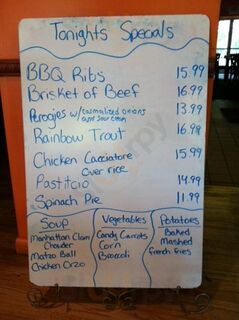 Tonights Specials
BBQ Ribs 15.99
Brisket of Beef 16.99
Perogies w/carmalized onions 13.99
and sour cream
Rainbow Trout 16.99
Chicken Cacciatore 15.99
Over rice
Pastitcio 14.99
Spinach Pie 11.99
Soup
Manhattan Clam
Chowder
Matzo Ball
Chicken Orzo
Vegetables
Candy Carrots
Corn
Broccoli
Potatoes
Baked
Mashed
french fries